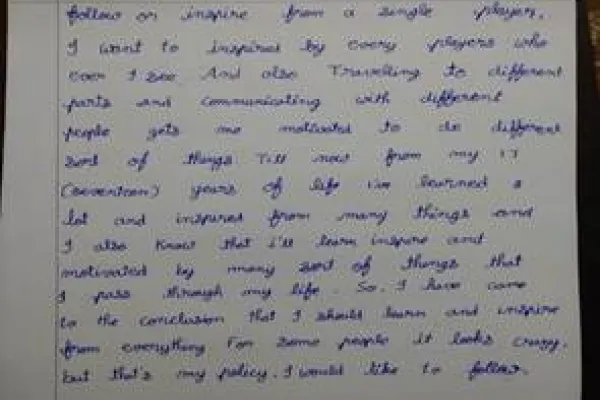 follow or inspire from a single player.
I want to inspired by every players who
ever I see. And also Travelling to different
parts and communicating with different
people gets me motivated to do different
sort of things. Till now from my 17
(seventeen) years of life i've learned a
lot and inspired from many things and
I also know that i'll learn inspire and
motivated by many sort of things that
I pass through my life. So, I have came
to the conclusion that I should learn and inspire
from everything For some people it looks crazy.
but that's my policy. I would like to follow.